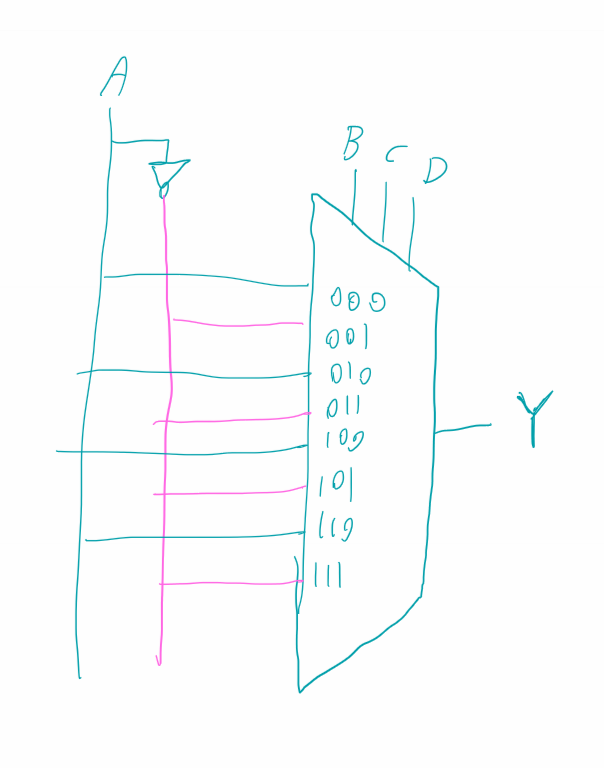 A
B C D
000
001
010
011
100
101
110
111
Y